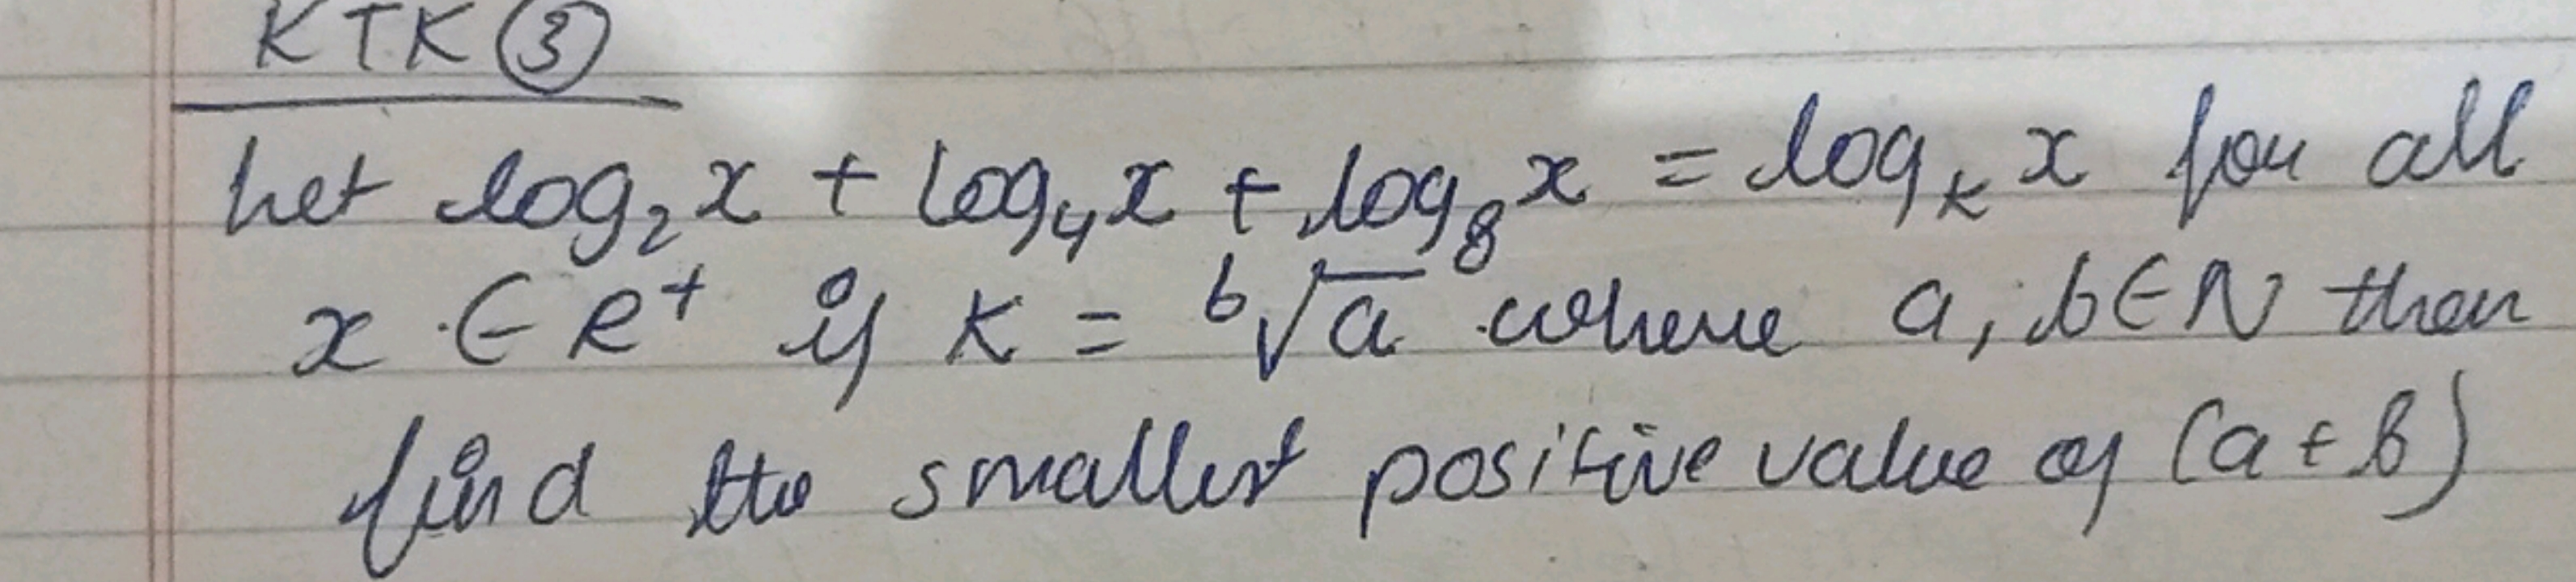 KTK ③
Let log₂x + log₄x + log₈x = logₖx for all
x ∈ R⁺ if K = ᵇ√a where a, b ∈ N then
find the smallest positive value of (a + b)